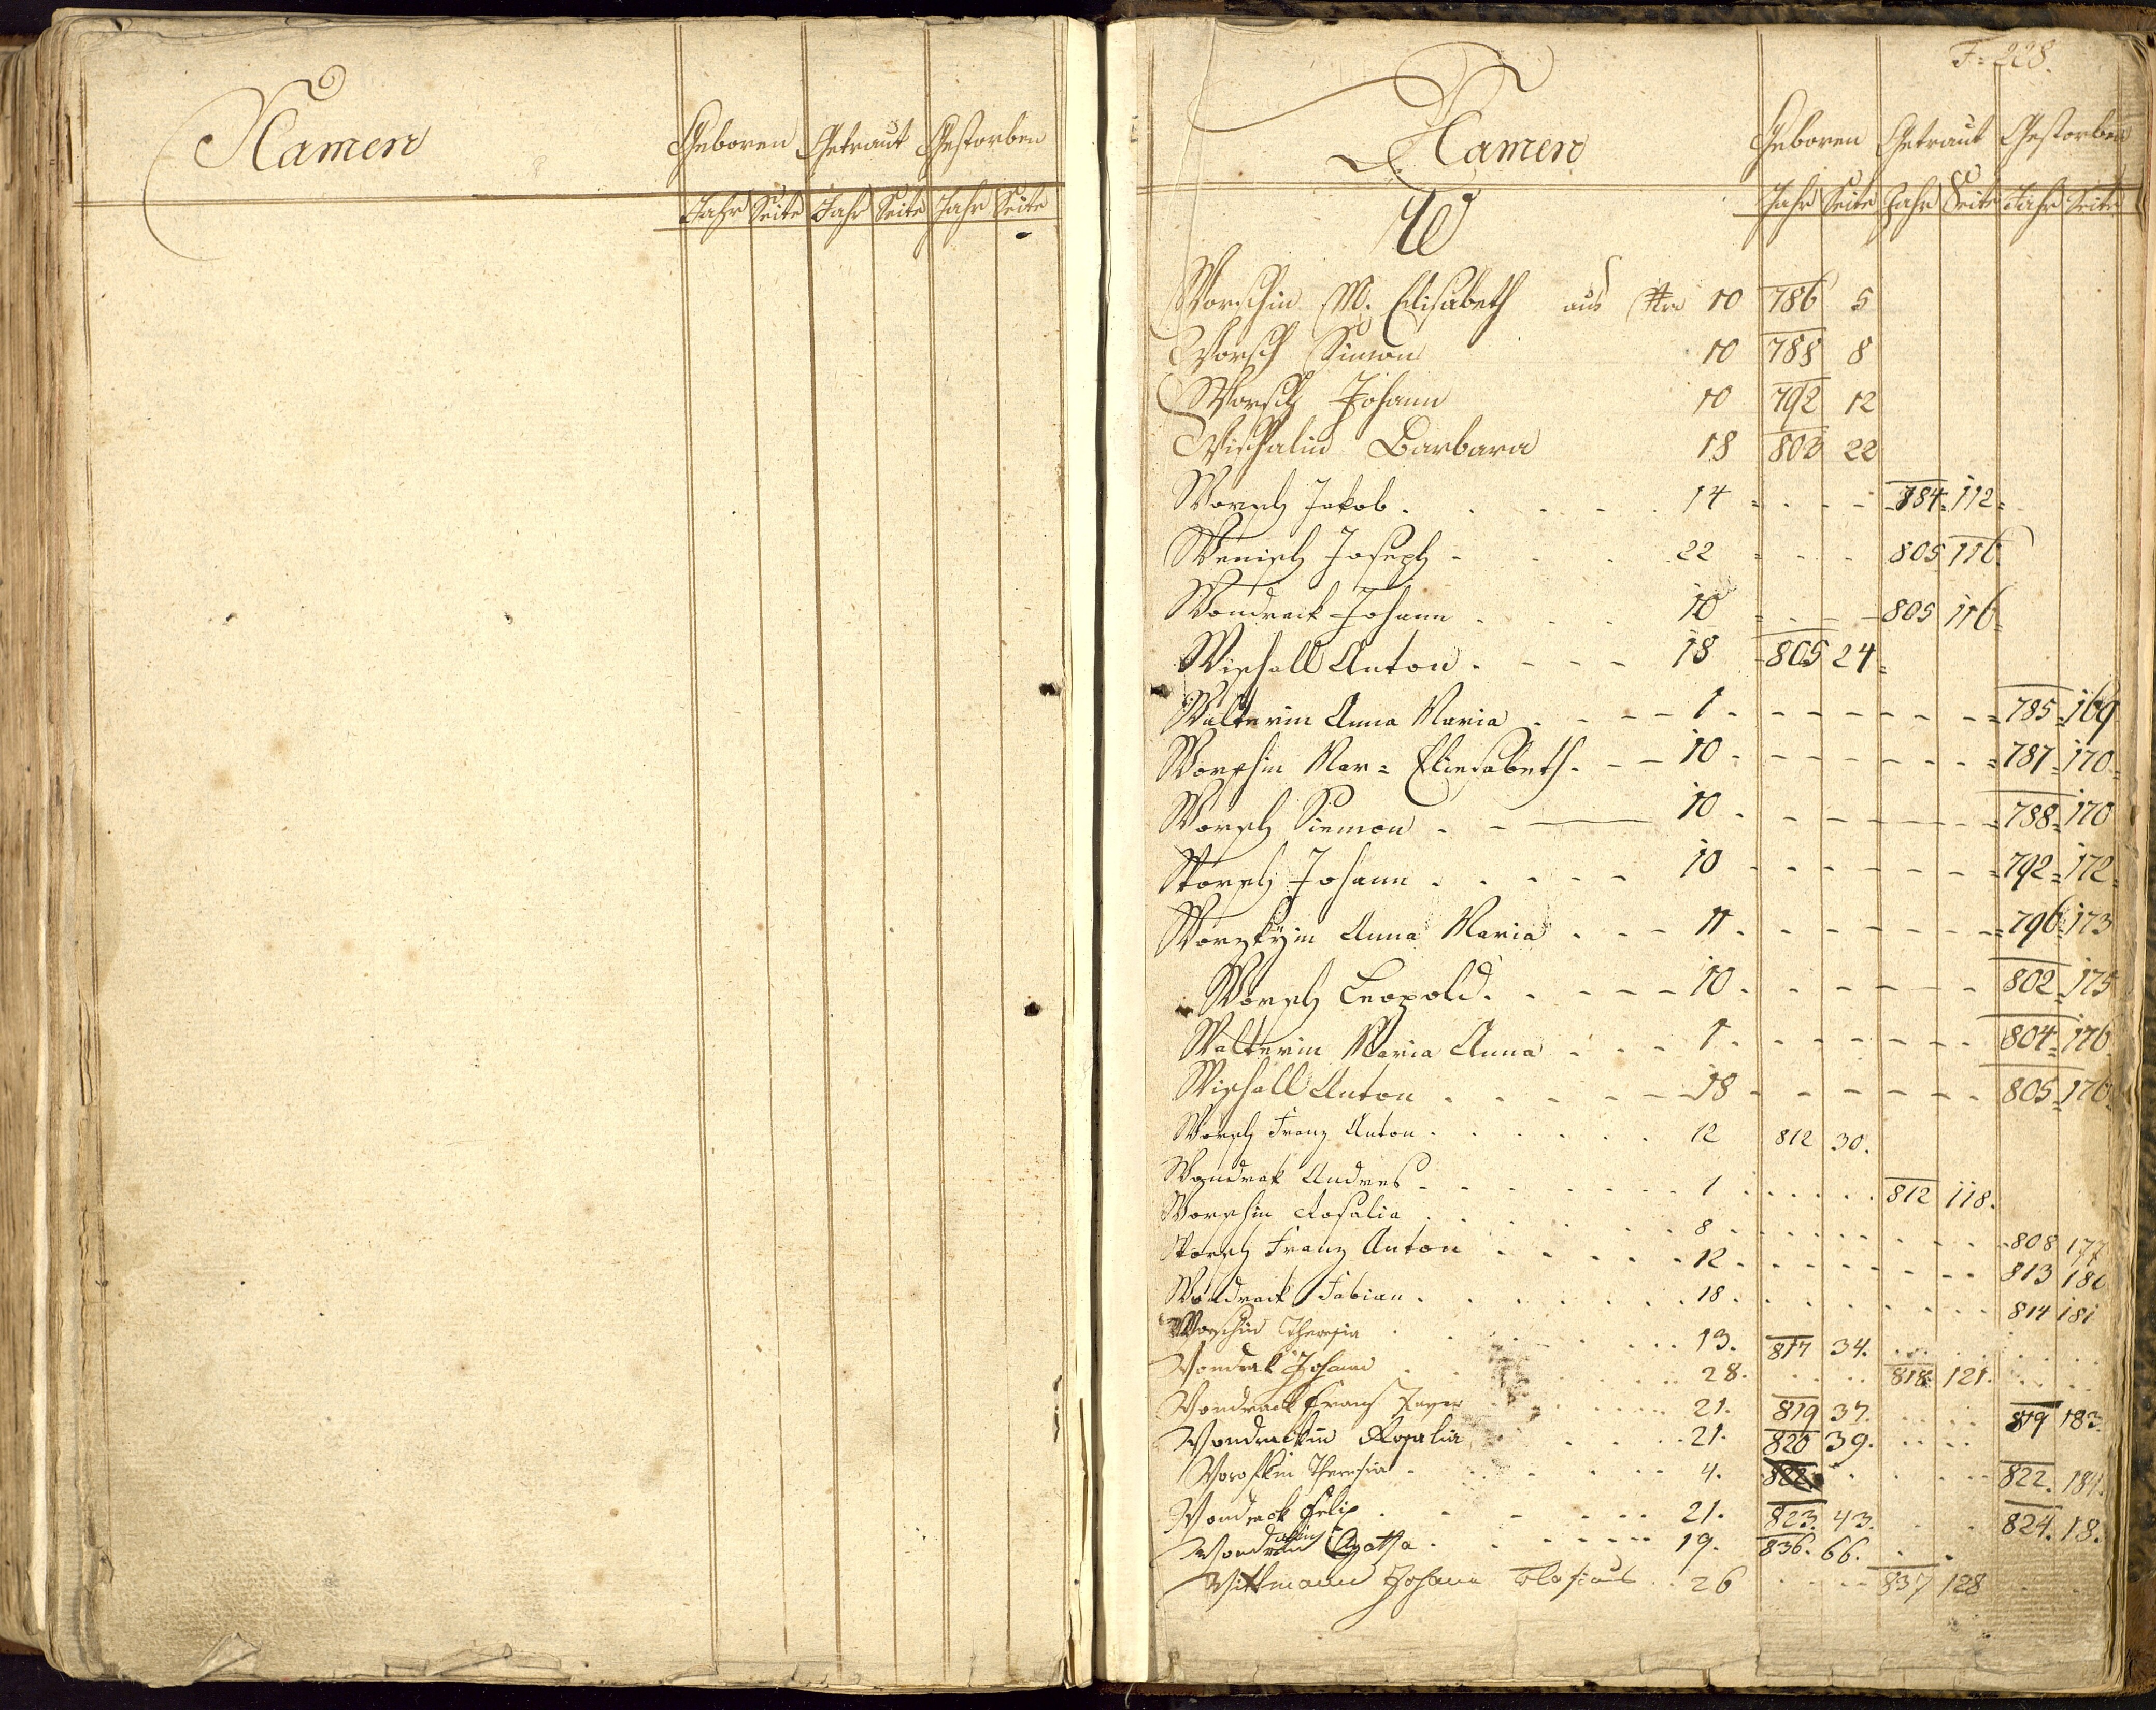 Namen Geboren Getraut Gestorben
Jahr Seite Jahr Seite Jahr Seite
F: 228.
Namen Geboren Getraut Gestorben
Jahr Seite Jahr Seite Jahr Seite
W
Worschin M. Elisabeth aus Nro 10 786 5
Worsch Simon 10 788 8
Worsch Johann 10 792 12
Wischalin Barbara 18 803 22
Worsch Jakob 14 784 112
Wenisch Joseph 22 805 116
Wondrack Johann 10 805 116
Wischall Anton 18 805 24
Walterin Anna Maria 1 785 169
Worschin Mar= Eliesabeth 10 787 170
Worsch Siemon 10 788 170
Worsch Johann 10 792 172
Anna Maria 11 796 173
Worsch Leopold 10 802 175
Walterin Maria Anna 1 804 176
Wischall Anton 18 805 176
Worsch Franz Anton 12 812 30.
Wondrak Andres 1 812 118.
Worschin Rosalia 8 808 177
Worsch Franz Anton 12 813 180
Wondrack Fabian 18 814 181
Worschin Theresia 13. 817 34.
Wondrak Johann 28. 818 121.
Wondrack Franz Xaver 21. 819 37. 819 183
Wondrackin Rosalia 21. 820 39.
Theresia 4. 822. 184.
Wondrak Felix 21. 823. 43. 824. 18.
Agatha 19. 836. 66.
Wittmann Johann Blasius 26 837 128